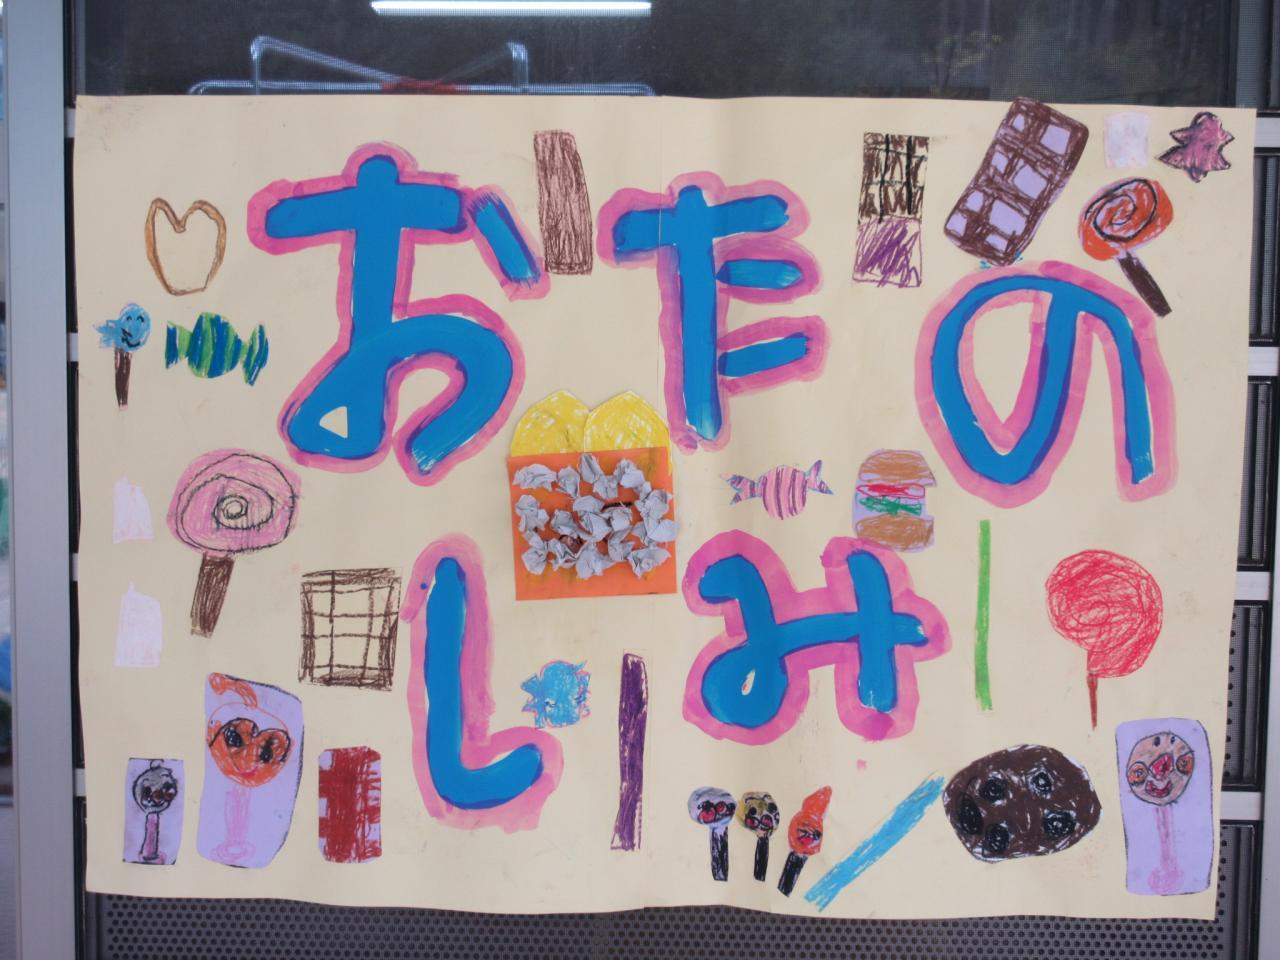 おたの
しみ